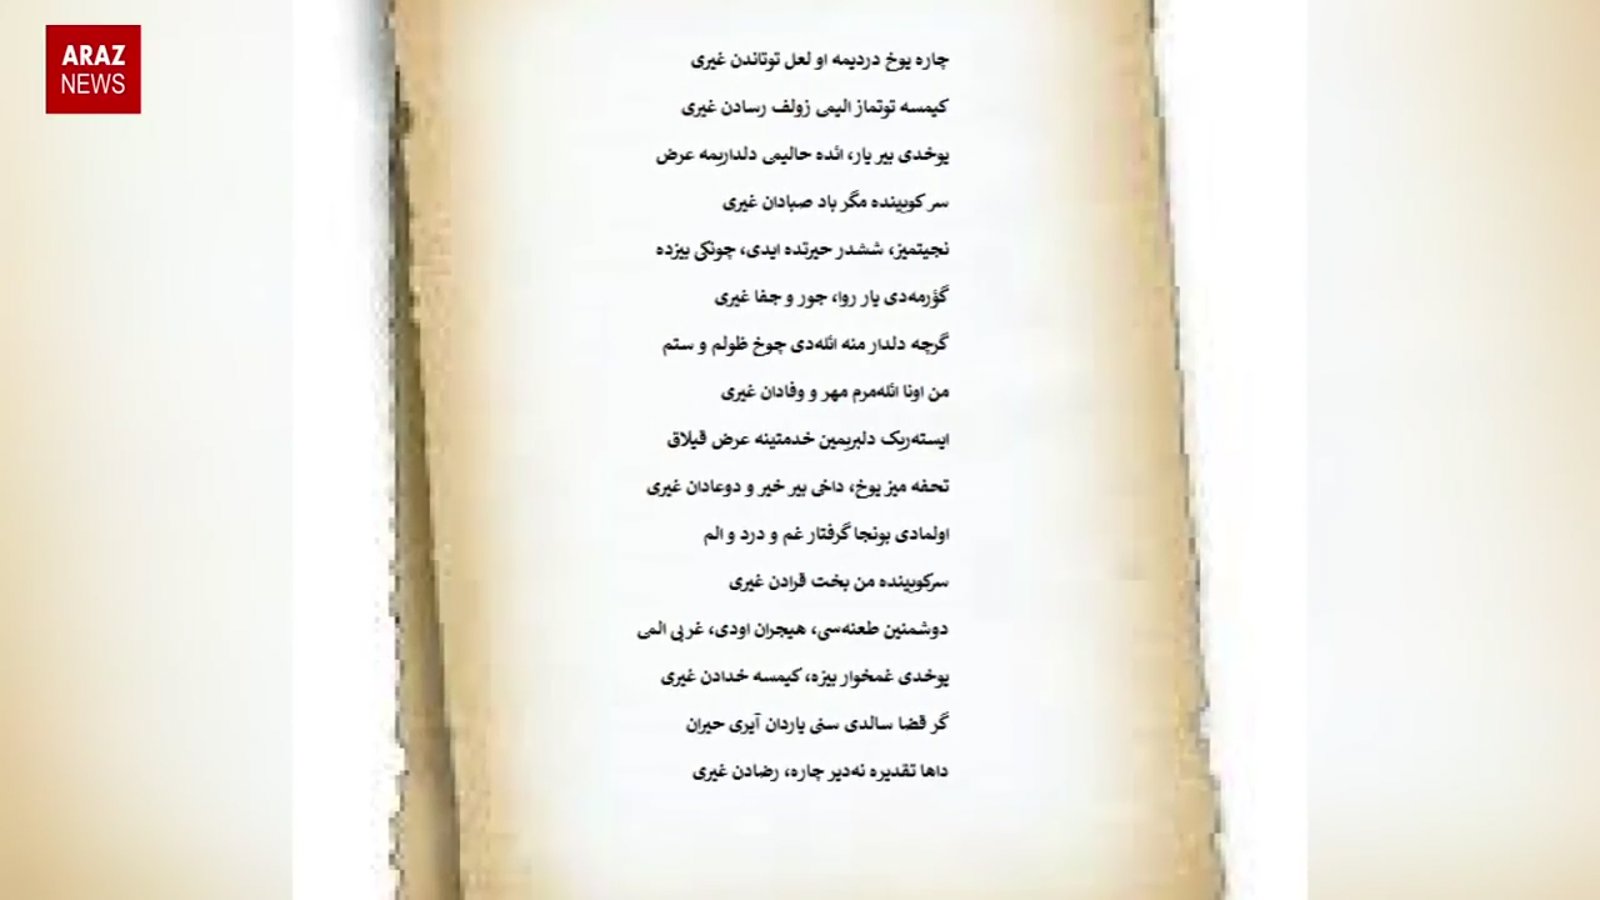 ARAZ
NEWS
چاره یوخ دردیمه او لعل توتاندن غیری
کیمسه توتماز الیمی زولف رسادن غیری
یوخدی بیر یار، ائده حالیمی دلداریمه عرض
سر کویینده مگر باد صبادان غیری
نجیتمیز، ششدر حیرتده ایدی، چونکی بیزده
گؤرمه‌دی یار روا، جور و جفا غیری
گرچه دلدار منه ائله‌دی چوخ ظولم و ستم
من اونا ائله‌مرم مهر و وفادان غیری
ایسته‌ریک دلبریمین خدمتینه عرض قیلاق
تحفه میز یوخ، داخی بیر خیر و دوعادان غیری
اولمادی بونجا گرفتار غم و درد و الم
سرکویینده من بخت قرادن غیری
دوشمنین طعنه‌سی، هیجران اودی، غربی المی
یوخدی غمخوار بیزه، کیمسه خدادن غیری
گر قضا سالدی سنی یاردان آیری حیران
داها تقدیره نه‌دیر چاره، رضادن غیری